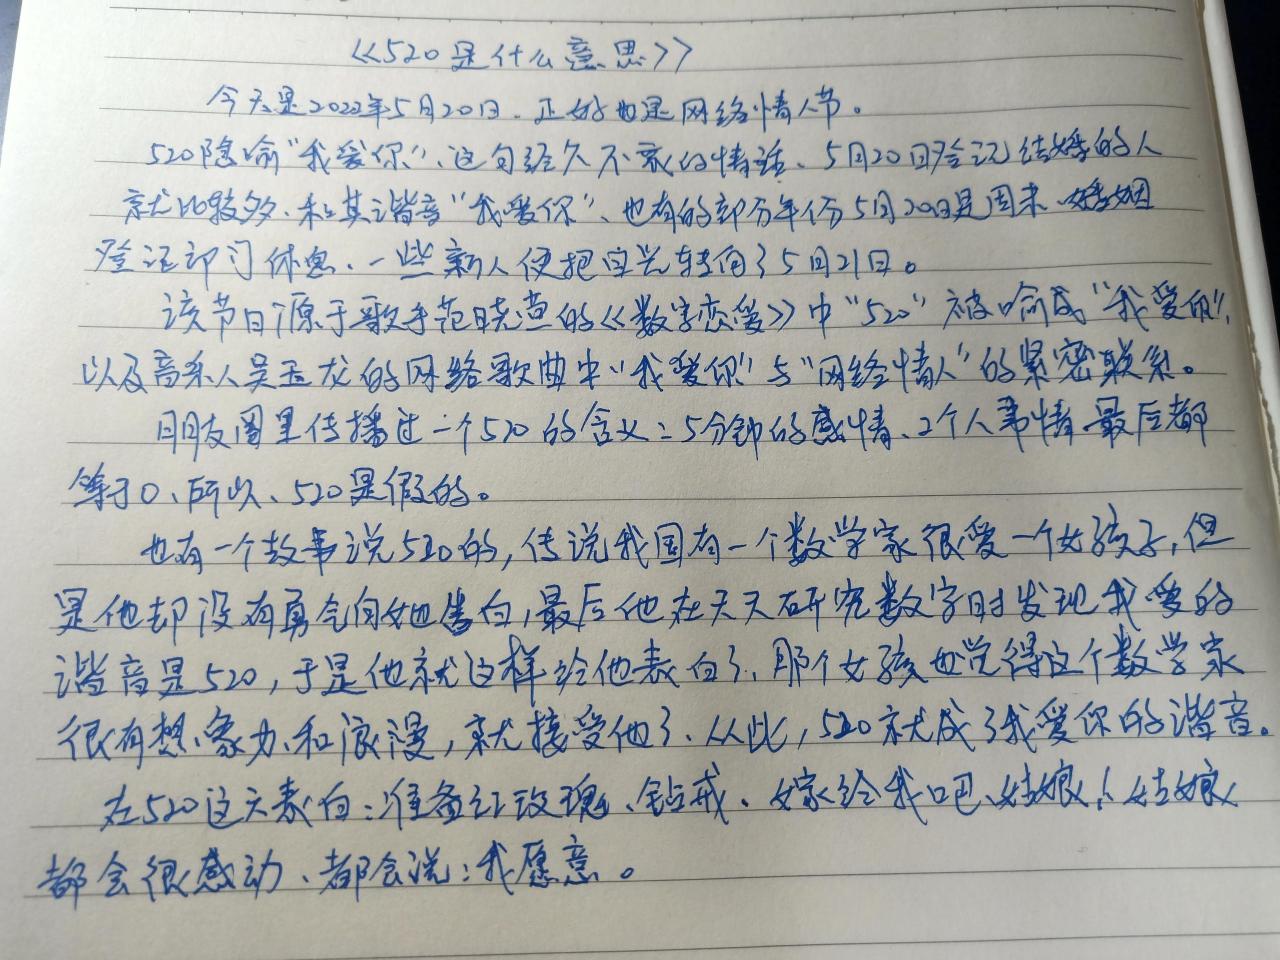 《520是什么意思》
今天是2022年5月20日、正好也是网络情人节。
520隐喻“我爱你”、这句经久不衰的情话、5月20日登记结婚的人
就比较多、和其谐音“我爱你”、也有的部分年份5月20日是周末、婚姻
登记部门休息、一些新人便把目光转向了5月21日。
该节日源于歌手范晓萱的《数字恋爱》中“520”被喻成“我爱你”，
以及音乐人吴玉龙的网络歌曲中“我爱你”与“网络情人”的紧密联系。
朋友圈里传播过一个520的含义：5分钟的感情、2个人事情最后都
等于0、所以、520是假的。
也有一个故事说520的，传说我国有一个数学家很爱一个女孩子，但
是他却没有勇气向她告白，最后他在天天研究数字时发现我爱的
谐音是520，于是他就这样给他表白了、那个女孩也觉得这个数学家
很有想象力、和浪漫，就接受他了、从此，520就成了我爱你的谐音。
在520这天表白：准备红玫瑰、钻戒、嫁给我吧、姑娘！姑娘
都会很感动、都会说：我愿意。